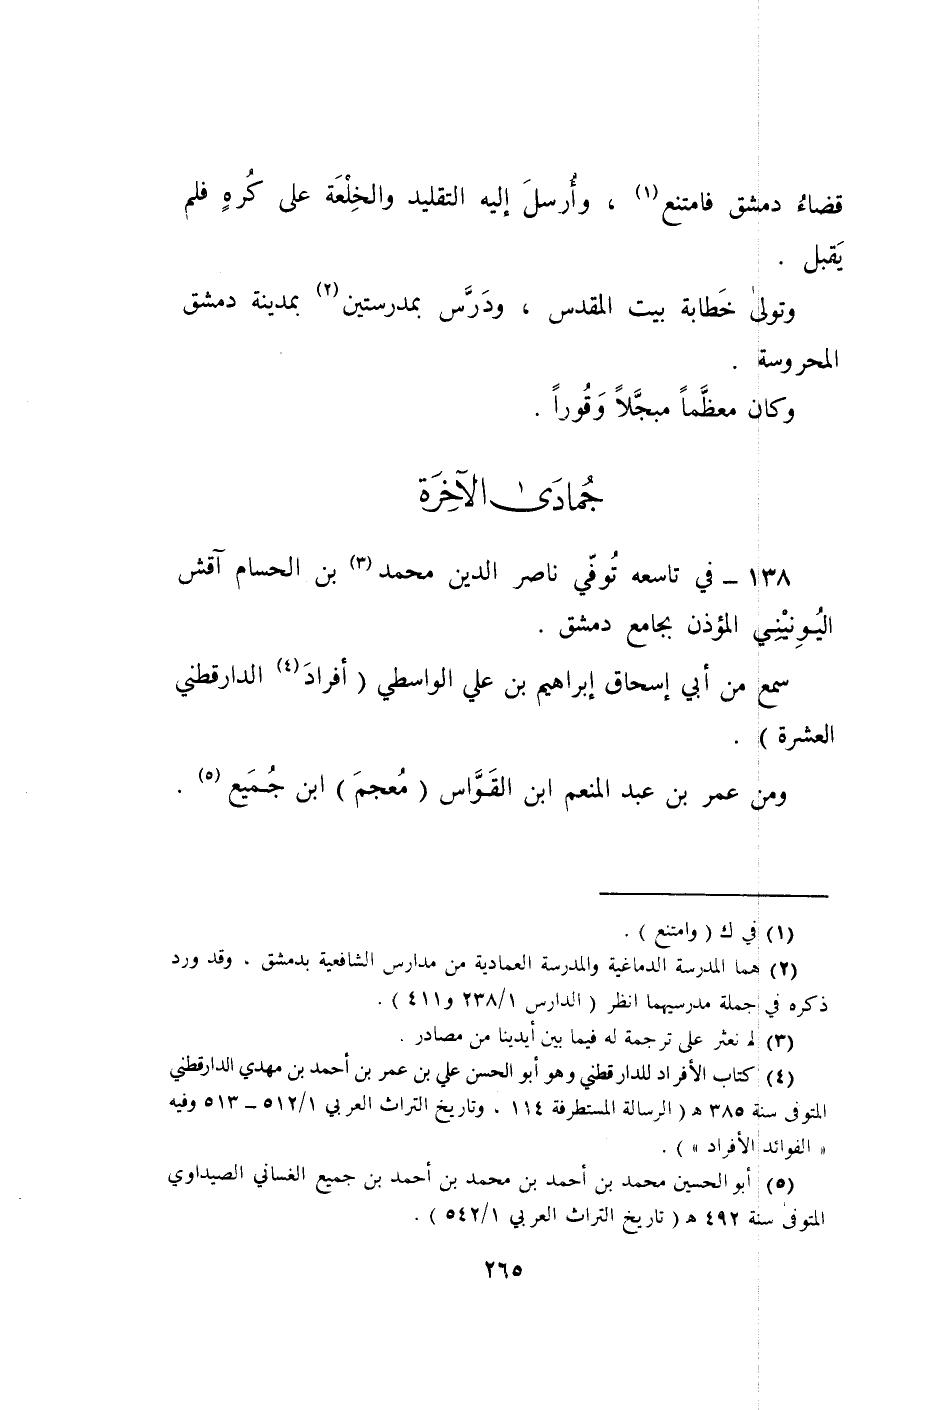 قضاءُ دمشق فامتنع(١) ، وأُرسلَ إليه التقليد والخِلْعَة على كُرهٍ فلم
يَقبل .
وتولىٰ خَطابة بيت المقدس ، ودَرَّس بمدرستين(٢) بمدينة دمشق
المحروسة .
وكان معظَّماً مبجَّلاً وَقُوراً .
جُمادَىٰ الآخِرَة
١٣٨ ـ في تاسعه تُوفّي ناصر الدين محمد(٣) بن الحسام آقش
اليُونِيْنِي المؤذن بجامع دمشق .
سمع من أبي إسحاق إبراهيم بن علي الواسطي ( أفرادَ(٤) الدارقطني
العشرة ) .
ومن عمر بن عبد المنعم ابن القَوَّاس ( مُعجمَ ) ابن جُمَيع(٥) .
(١) في ك ( وامتنع ) .
(٢) هما المدرسة الدماغية والمدرسة العمادية من مدارس الشافعية بدمشق . وقد ورد
ذكره في جملة مدرسيهما انظر ( الدارس ٢٣٨/١ و٤١١ ) .
(٣) لم نعثر على ترجمة له فيما بين أيدينا من مصادر .
(٤) كتاب الأفراد للدارقطني وهو أبو الحسن علي بن عمر بن أحمد بن مهدي الدارقطني
المتوفى سنة ٣٨٥ هـ ( الرسالة المستطرفة ١١٤ . وتاريخ التراث العربي ٥١٢/١ ـ ٥١٣ وفيه
« الفوائد الأفراد » ) .
(٥) أبو الحسين محمد بن أحمد بن محمد بن أحمد بن جميع الغساني الصيداوي
المتوفىٰ سنة ٤٩٢ هـ ( تاريخ التراث العربي ٥٤٢/١ ) .
٢٦٥